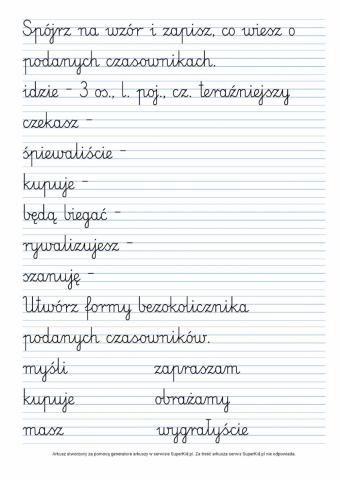 Spójrz na wzór i zapisz, co wiesz o
podanych czasownikach.
idzie - 3 os., l. poj., cz. teraźniejszy
czekasz -
śpiewaliście -
kupuje -
będą biegać -
rywalizujesz -
szanuję -
Utwórz formy bezokolicznika
podanych czasowników.
myśli zapraszam
kupuje obrażamy
masz wygrałyście
Arkusz utworzony za pomocą generatora arkuszy w serwisie SuperKid.pl. Za treść arkusza serwis SuperKid.pl nie odpowiada.